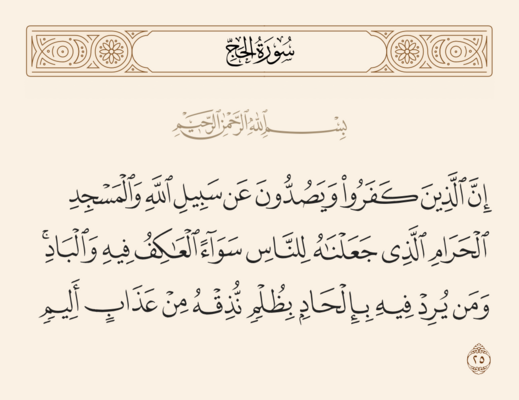 سُورَةُ الحَجِّ
بِسْمِ ٱللَّهِ ٱلرَّحْمَٰنِ ٱلرَّحِيمِ
إِنَّ ٱلَّذِينَ كَفَرُوا۟ وَيَصُدُّونَ عَن سَبِيلِ ٱللَّهِ وَٱلْمَسْجِدِ
ٱلْحَرَامِ ٱلَّذِى جَعَلْنَٰهُ لِلنَّاسِ سَوَآءً ٱلْعَٰكِفُ فِيهِ وَٱلْبَادِ ۚ
وَمَن يُرِدْ فِيهِ بِإِلْحَادٍۭ بِظُلْمٍ نُّذِقْهُ مِنْ عَذَابٍ أَلِيمٍ
٢٥